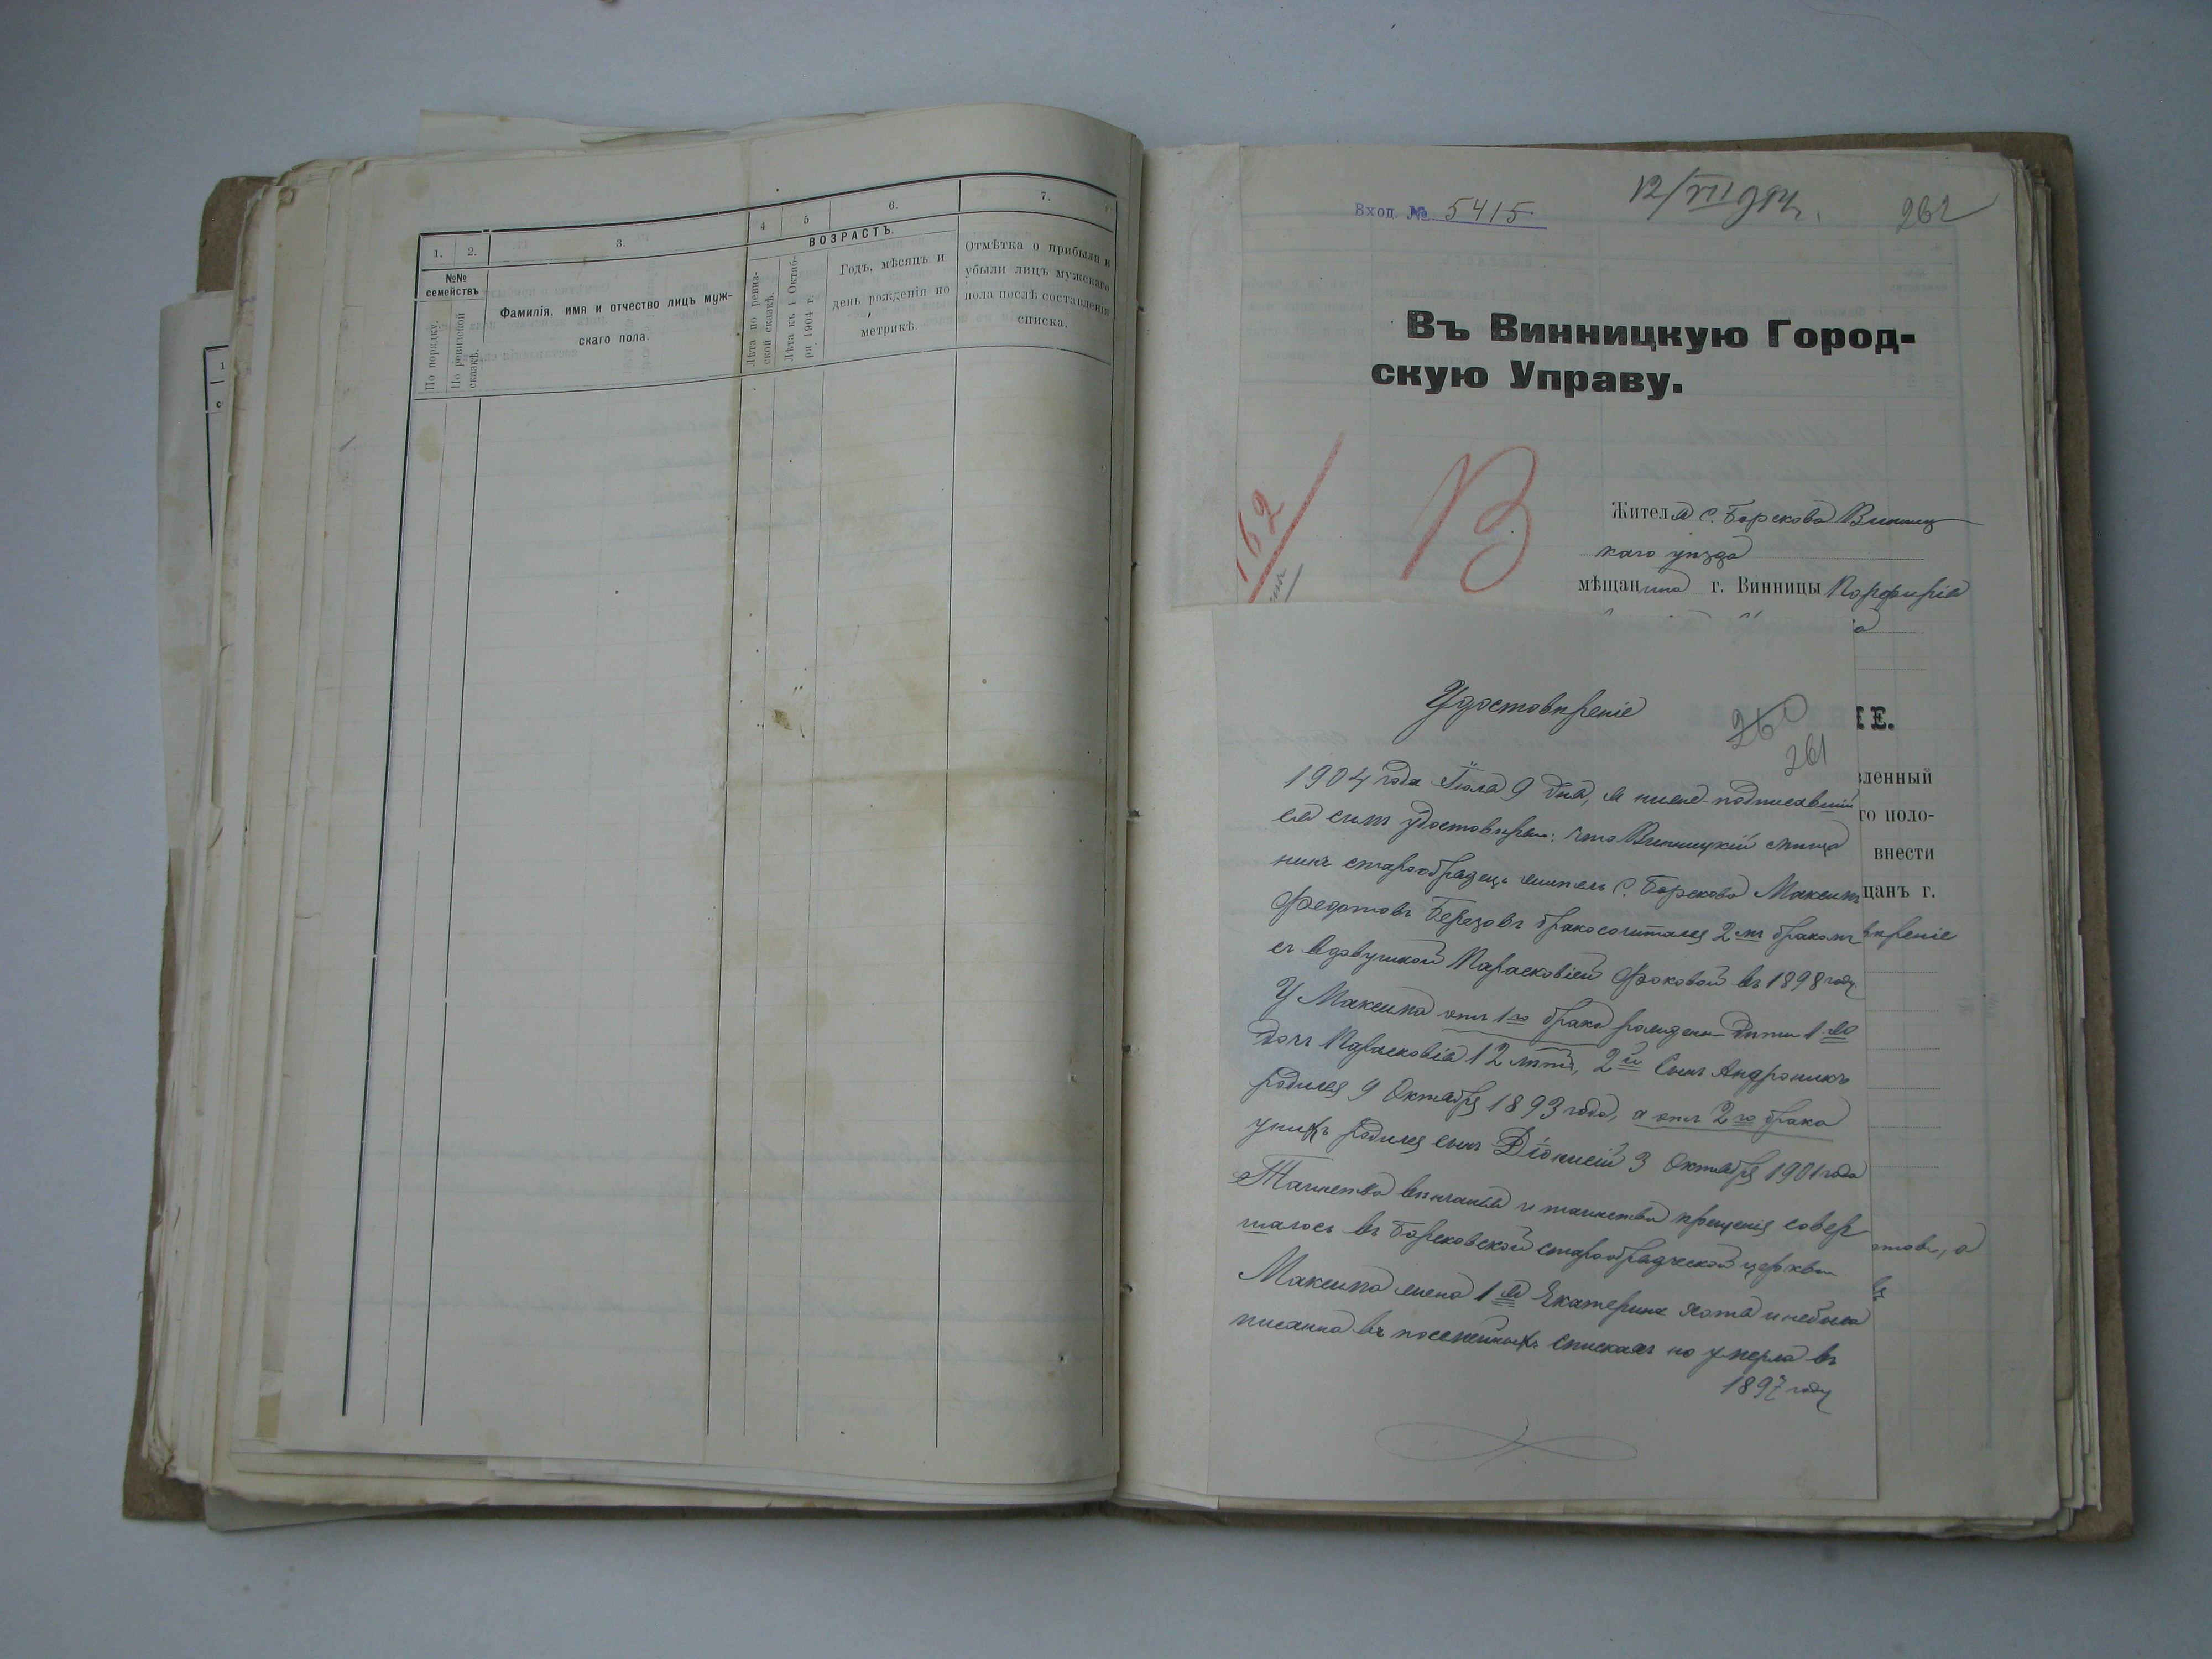 1. 2. 3. 4 5 6. 7.
№№ семействъ
По порядку.
По ревизской сказкѣ.
Фамилія, имя и отчество лицъ муж-
скаго пола.
ВОЗРАСТЪ.
Лѣта по ревиз-
ской сказкѣ.
Лѣта къ 1 Октяб-
ря 1904 г.
Годъ, мѣсяцъ и
день рожденія по
метрикѣ.
Отмѣтка о прибыли и
убыли лицъ мужскаго
пола послѣ составленія
списка.
Вход. № 5415
12/VII 904 г.
262
Въ Винницкую Город-
скую Управу.
162
В
Жителя с. Борскова Винниц
каго уѣзда
мѣщанина г. Винницы Порфирія
Удостовѣреніе
260
261
1904 года Іюля 9 дня, я ниже подписавшій
ся симъ удостовѣряю: что Винницкій мѣща
нинъ старообрядецъ житель с. Борскова Максимъ
Федотовъ Березовъ бракосочитался 2мъ бракомъ
съ вдовушкой Парасковіей Фоковой въ 1898 году.
У Максима отъ 1го брака рождены дѣти 1я
дочъ Парасковія 12 лѣтъ, 2й Сынъ Андроникъ
родился 9 Октября 1893 года, а отъ 2го брака
унихъ родился сынъ Діонисій 3 Октября 1901 года
Таинства вѣнчанія и таинства крещенія совер
шалось въ Борсковской старообрядческой церкви
Максима жена 1я Екатерина хотя и небыла
писанна въ посемейныхъ спискахъ но умерла въ
1897 году
ІЕ.
вленный
го поло-
внести
щанъ г.
вѣреніе